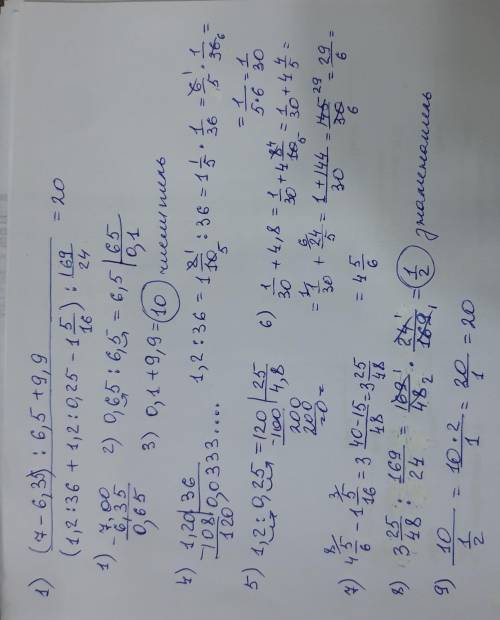 1) (7 - 6,35) : 6,5 + 9,9
(1,2 : 36 + 1,2 : 0,25 - 1 5/16) : 169/24 = 20
1) - 7,00
6,35
0,65
2) 0,65 : 6,5 = 6,5 | 65
0,1
3) 0,1 + 9,9 = 10 числитель
4) 1,20 | 36
-108 | 0,0333....
120
1,2 : 36 = 1 2/10 : 36 = 1 1/5 · 1/36 = 6/5 · 1/36 =
= 1/5·6 = 1/30
5) 1,2 : 0,25 = 120 | 25
-100 | 4,8
200
200
=0=
6) 1/30 + 4,8 = 1/30 + 4 8/10 = 1/30 + 4 4/5 =
= 1/30 + 24/5 = 1 + 144/30 = 145/30 = 29/6 =
= 4 5/6
7) 4 5/6 - 1 5/16 = 3 40-15/48 = 3 25/48
8) 3 25/48 : 169/24 = 169/48 · 24/169 = 1/2 знаменатель
9) 10/1/2 = 10·2/1 = 20/1 = 20